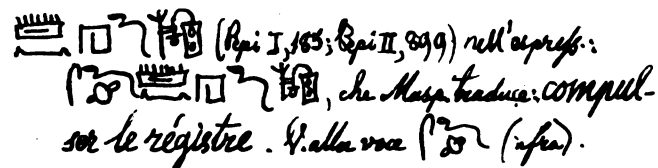 (Pepi I, 185; Pepi II, 899) nell'espress.:
, che Masp. traduce: compul-
ser le régistre. V. alla voce (infra).